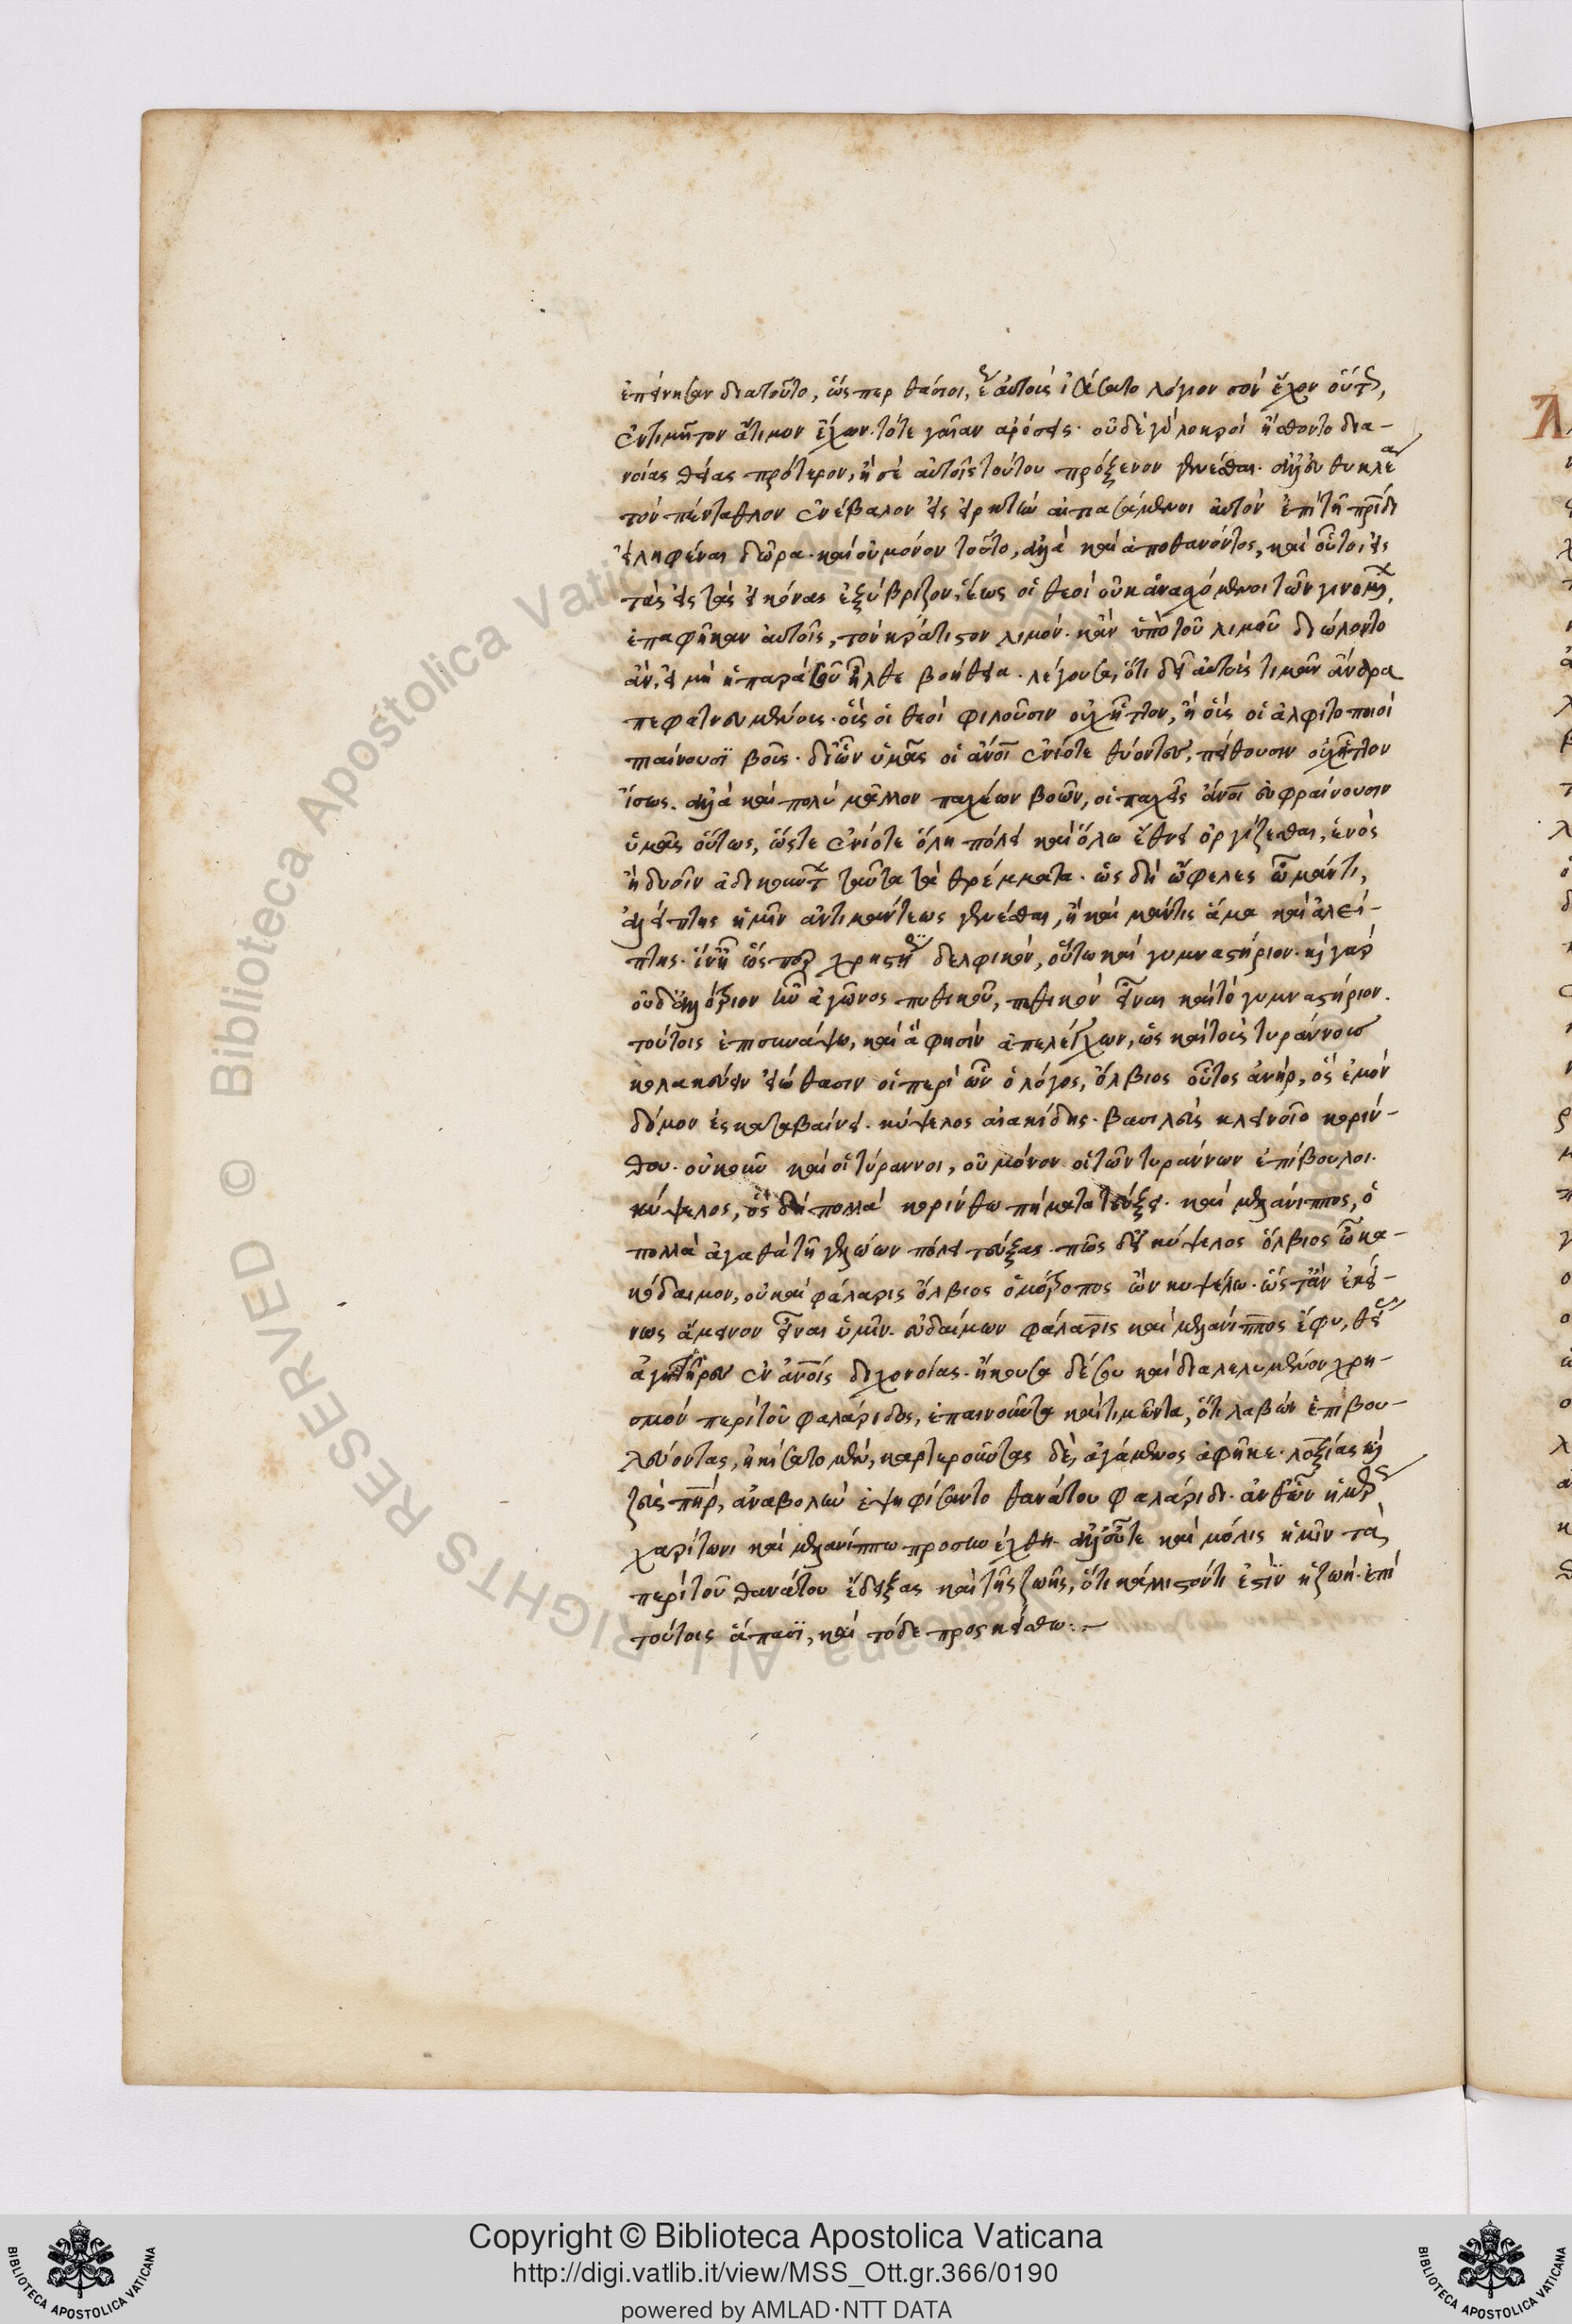 ἐπείνησαν διατοῦτο, ὥςπερ θάσιοι, αὐτοῖς ἰάσατο λόγιον σὸν ἔχον οὕτως,
ἐντιμῆτον ἄτιμον ἔχων. τότε γαῖαν ἀρόσεις. οὐδὲ γὰρ λοκροὶ ᾔσθοντο δια-
νοίας θείας πρότερον, ἢ σὲ αὐτοῖς τούτου πρόξενον γενέσθαι. ἀλλ' εὐθυκλέα
τὸν πένταθλον ἐνέβαλον εἰς εἱρκτὴν αἰτιασάμενοι αὐτὸν ἐπὶ τῇ πρίδι
εἰληφέναι δῶρα. καὶ οὐ μόνον τοῦτο, ἀλλὰ καὶ ἀποθανόντος, καὶ οὗτοι εἰς
τὰς εἰς τὰς εἰκόνας ἐξύβριζον, ἕως οἱ θεοὶ οὐκ ἀνασχόμενοι τῶν γινομένων,
ἐπαφῆκαν αὐτοῖς, τὸν κράτιστον λιμόν. κἂν ὑπὸ τοῦ λιμοῦ διώλοντο
ἄν, εἰ μὴ ἡ παρὰ σοῦ ἦλθε βοήθεια. λέγουσα, ὅτι δεῖ αὐτοὺς τιμᾶν ἄνδρα
πεφατνευμένους. οἷς οἱ θεοὶ φιλοῦσιν οὐχ ἧττον, ἢ οἷς οἱ ἀλφιτοποιοὶ
πιαίνουσι βοῦς. δι' ὧν ὑμᾶς οἱ ἄνοι ἐνίοτε θύοντες, πείθουσιν οὐχ ἧττον
ἴσως. ἀλλὰ καὶ πολὺ μᾶλλον παχέων βοῶν, οἱ παχεῖς ἄνοι εὐφραίνουσιν
ὑμᾶς οὕτως, ὥςτε ἐνίοτε ὅλη πόλει καὶ ὅλω ἔθνει ὀργίζεσθαι, ἑνὸς
ἢ δυοῖν ἀδικούντων ταῦτα τὰ θρέμματα. ὡς δὴ ὤφελες ὦ μάντι,
ἀλείπτης ἡμῖν ἀντὶ μάντεως γενέσθαι, ἢ καὶ μάντις ἅμα καὶ ἀλεί-
πτης. ἵν' ᾖ ὥςπερ χρηστήριον δελφικὸν, οὕτω καὶ γυμναστήριον. καὶ γὰρ
οὐδ' ἀλλότριον τοῦ ἀγῶνος πυθικοῦ, πυθικὸν εἶναι καὶ τὸ γυμναστήριον.
τούτοις ἐπισυνάψω, καὶ ἅ φησιν ἀπελέγχων, ὡς καὶ τοὺς τυράννους
κολακεύειν εἰώθασιν οἱ περὶ ὧν ὁ λόγος, ὄλβιος οὗτος ἀνήρ, ὃς ἐμὸν
δόμον ἐς καταβαίνει. κύψελος αἰακίδης. βασιλεὺς κλεινοῖο κορίν-
θου. οὐκοῦν καὶ οἱ τύραννοι, οὐ μόνον οἱ τῶν τυράννων ἐπίβουλοι.
κύψελος, ὃς δὴ πολλὰ κορίνθω πήματα τεύξει. καὶ μελάνιππος, ὁ
πολλὰ ἀγαθὰ τῇ γελώων πόλει τεύξας. πῶς δὲ κύψελος ὄλβιος ὦ κα-
κόδαιμον, οὐ καὶ φάλαρις ὄλβιος ὁμότροπος ὢν κυψέλω. ὥςτ' ἂν ἐκεί-
νως ἄμεινον εἶναι ὑμῖν. εὐδαίμων φάλαρις καὶ μελάνιππος ἔφυ, θείας
ἁγητῆρες ἐν ἀνοῖς διχονοίας. ἤκουσα δέ σου καὶ διαλελυμένον χρη-
σμὸν περὶ τοῦ φαλάριδος, ἐπαινοῦντα καὶ τιμῶντα, ὅτι λαβὼν ἐπιβου-
λεύοντας, ᾐκίσατο μὲν, καρτεροῦντας δὲ, ἀγάμενος ἀφῆκε. λοξίας καὶ
ζεὺς πηρ, ἀναβολὴν ἐψηφίσαντο θανάτου φαλάριδι. ἀνθ' ὧν ἡμέρως
χαρίτωνι καὶ μελανίππω προσηνέχθη. ἀλλ' οὖτε καὶ μόλις ἡμῖν τὰ
περὶ τοῦ θανάτου ἔδειξας καὶ τῆς ζωῆς, ὅτι κάλλιστόν τι ἐστὶν ἡ ζωή. ἐπὶ
τούτοις ἅπασι, καὶ τόδε προςκείσθω:. –
Copyright © Biblioteca Apostolica Vaticana
http://digi.vatlib.it/view/MSS_Ott.gr.366/0190
powered by AMLAD·NTT DATA